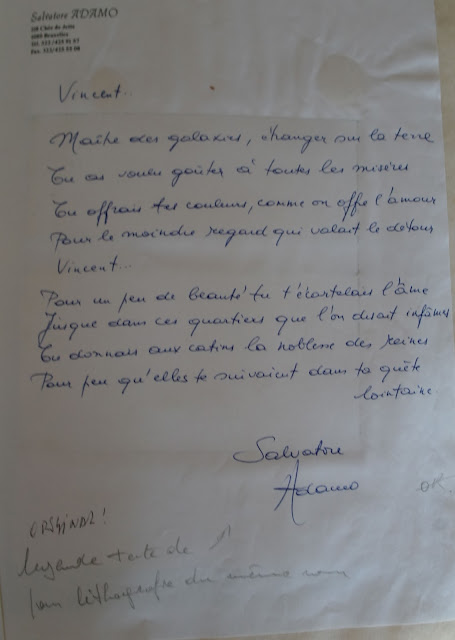 Salvatore ADAMO
1080 Bruxelles
Vincent...
Maître des galaxies, étranger sur la terre
Tu as voulu goûter à toutes les misères
Tu offrais tes couleurs, comme on offre l'amour
Pour le moindre regard qui valait le détour
Vincent...
Pour un peu de beauté tu t'écartelais l'âme
Jusque dans ces quartiers que l'on disait infâmes
Tu donnais aux catins la noblesse des reines
Pour peu qu'elles te suivaient dans ta quête
lointaine
Salvatore
Adamo
OK
ORIGINAL!
texte de
pour lithographie du même nom